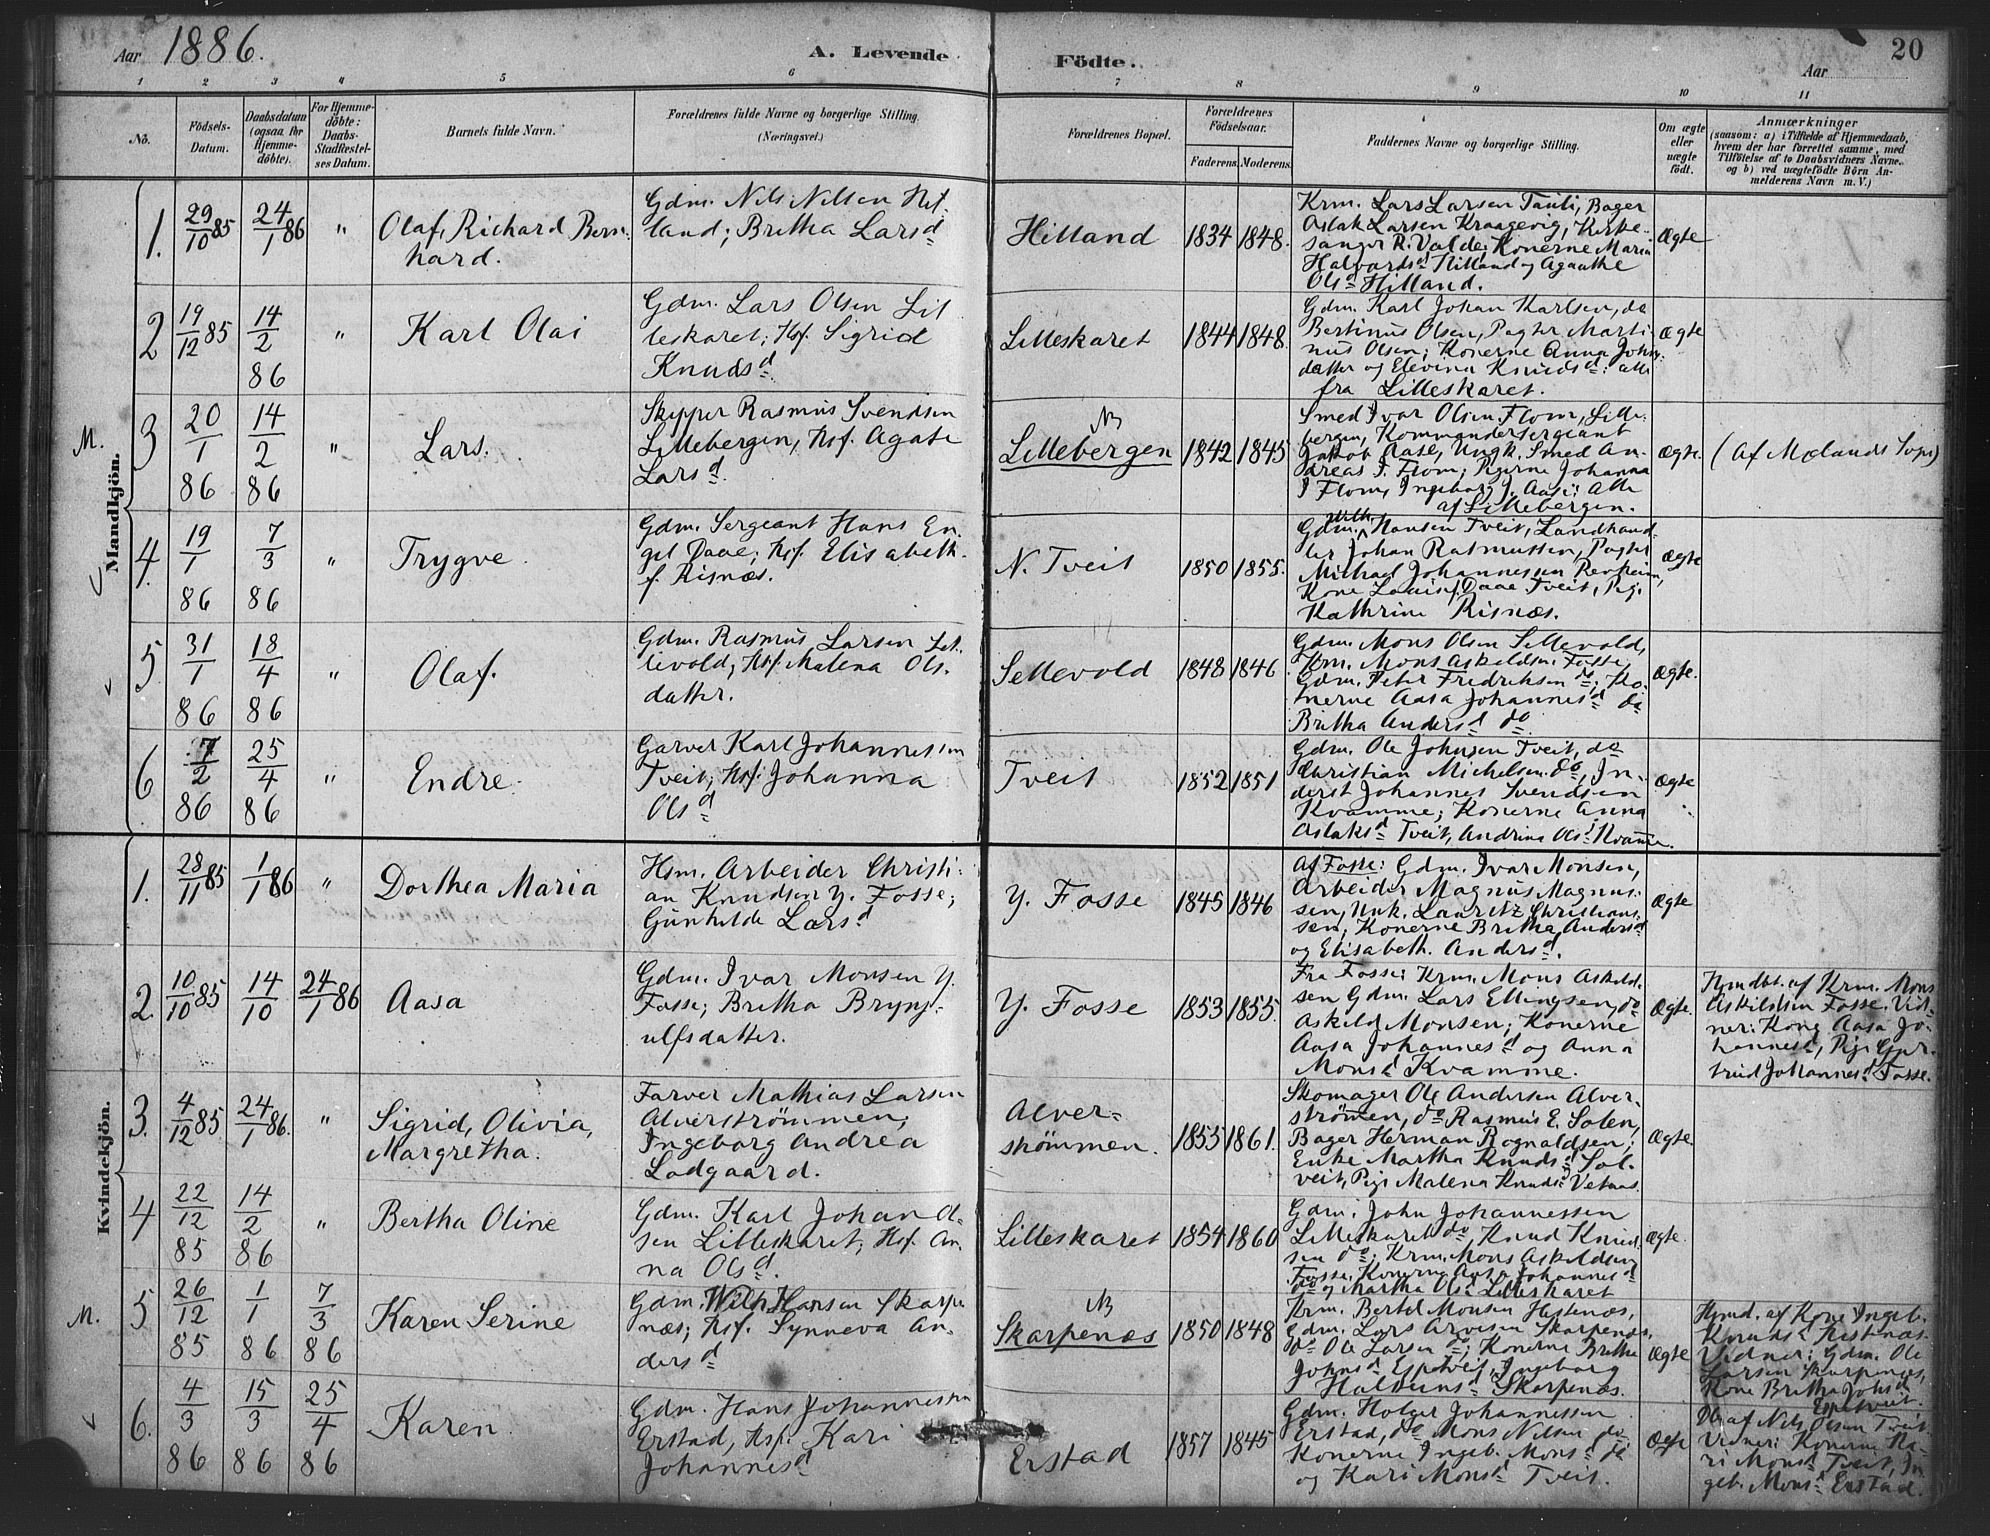 Aar 1886.
A. Levende Födte.
Aar
20
1 2 3 4 5 6 7 8 9 10 11
No.
Födsels-
Datum.
Daabsdatum
(ogsaa for
Hjemme-
döbte).
For Hjemme-
döbte:
Daabs-
Stadfæstel-
ses Datum.
Barnets fulde Navn.
Forældrenes fulde Navne og borgerlige Stilling.
(Næringsvei.)
Forældrenes Bopæl.
Forældrenes
Födselsaar.
Faderens. Moderens.
Faddernes Navne og borgerlige Stilling.
Om ægte
eller
uægte
födt.
Anmærkninger
(saasom: a) i Tilfælde af Hjemmedaab,
hvem der har forrettet samme, med
Tilföielse af to Daabsvidners Navne.
og b) ved uægtefödte Börn An-
melderens Navn m. V.)
Mandkjön.
1. 29/10 85 24/1 86 "
Olaf, Richard Bern-
hard.
Gdm. Nils Nilsen Hil-
land; Britha Larsd
Hilland
1834 1848.
Krm. Lars Larsen Tauli, Bager
Aslak Larsen Kraagevig, Kirke-
sanger R. Valde; Konerne Maria
Halvardsd Hilland og Agaathe
Olsd Hilland.
Ægte
2 19/12 85 14/2 86 "
Karl Olai
Gdm. Lars Olsen Lil
leskaret; Hsf. Sigrid
Knudsd
Lilleskaret
1844 1848.
Gdm. Karl Johan Karlsen, do
Bertinus Olsen, Pagter Marti-
nus Olsen; Konerne Anna Johns
datter og Elevina Knudsd: alle
fra Lilleskaret.
Ægte
M.
3 20/1 86 14/2 86 "
Lars.
Skipper Rasmus Svendsen
Lillebergen, Hsf. Agate
Larsd.
NB
Lillebergen
1842 1845
Smed Ivar Olsen Flom, Lille-
bergen, Kommandersergeant
Jakob Aase, Ungk. Smed An-
dreas I. Flom; Pigerne Johanna
I Flom, Ingeborg J. Aase: Alle
af Lillebergen.
Ægte.
(Af Mælands Sogn)
4. 19/1 86 7/3 86 "
Trygve.
Gdm. Sergeant Hans En-
gel Daae; Hsf. Elisabeth
f. Risnæs.
N. Tveit
1850 1855.
Gdm. Wilh. Hansen Tveit, Landhand-
ler Johan Rasmussen, Pagter
Michael Johannessen
Kone Louise f. Daae Tveit, Pige
Kathrine Risnæs.
Ægte
5 31/1 86 18/4 86 "
Olaf.
Gdm. Rasmus Larsen Sel-
levold; Hsf. Malena Ols-
datter.
Sellevold
1848 1846
Gdm. Mons Olsen Sellevold,
Krm. Mons Askeldsen Fosse,
Gdm. Peter Fredriksen do; Ko-
nerne Aasa Johannesd do
Britha Andersd do.
Ægte.
6 7/2 86 25/4 86 "
Endre.
Garver Karl Johannessen
Tveit; Hsf. Johanna
Olsd
Tveit
1852 1851
Gdm. Ole Johnsen Tveit, do
Christian Michelsen do, In-
derst Johannes Svendsen
Kvamme; Konerne Anna
Aslaksd Tveit, Andrina Olsd Kvamme.
Ægte
Kvindekjön.
1. 28/11 85 1/1 86 "
Dorthea Maria
Hsm. Arbeider Christi-
an Knudsen Y. Fosse;
Gunhilde Larsd
Y. Fosse
1845 1846
Af Fosse: Gdm. Ivar Monsen,
Arbeider Magnus Magnus-
sen, Unk. Lauritz Christian-
sen, Konerne Britha Andersd
og Elisabeth. Andersd.
Ægte
2. 10/10 85 14/10 24/1 86
Aasa
Gdm. Ivar Monsen Y.
Fosse; Britha Brynj-
ulfsdatter.
Y. Fosse
1853 1855.
Fra Fosse: Krm. Mons Askeld-
sen Gdm. Lars Ellingsen, do
Askild Monsen; Konerne
Aasa Johannesd og Anna
Monsd Kvamme.
Ægte.
Hjmdbt. af Krm. Mons
Askildsen Fosse. Vid-
ner: Kone Aasa Jo-
hannesd, Pige Gjer-
trud Johannesd Fosse.
3. 4/12 85 24/1 86. "
Sigrid, Olivia,
Margretha.
Farver Mathias Larsen
Alverströmmen;
Ingeborg Andrea
Lodgaard.
Alver-
strömmen.
1855 1861.
Skomager Ole Andersen Alver-
strömen, do Rasmus E. Solen,
Bager Herman Rognaldsen;
Enke Martha Knudsd Sol-
veit, Pige Malena Knudsd Vetaas
Ægte
4 22/12 85 14/2 86 "
Bertha Oline
Gdm. Karl Johan Ol-
sen Lilleskaret; Hsf. An-
na Olsd.
Lilleskaret
1854 1860
Gdm. John Johannessen
Lilleskaret do, Knud Knud-
sen do; Krm. Mons Askeldsen
Fosse. Konerne Aasa Johannesd
do og Martha Olsd Lilleskaret
Ægte.
M.
5 26/12 85 1/1 86 7/3 86
Karen Serine
Gdm. Wilh. Hansen Skarpe-
næs; Hsf. Synneva An-
dersd
NB
Skarpenæs
1850 1848
Krm. Bertel Monsen Hestenæs,
Gdm. Lars Arvesen Skarpenæs,
do Ole Larsen do; Konerne Britha
Johnsd Espetveit, Ingeborg
Skarpenæs.
Ægte
Hjmd. af Kone Ingeb.
Knudsd Hestenæs.
Vidner: Gdm. Ole
Larsen Skarpenæs,
Kone Britha Johsd
Espetveit.
6. 4/3 86 15/3 86 25/4 86
Karen.
Gdm. Hans Johannessen
Erstad, Hsf. Kari
Johannesd
Erstad
1857 1845
Gdm. Holger Johannessen
Erstad, do Mons Nilsen do
Konerne Ingeb. Monsd do
og Kari Monsd Tveit.
Ægte
Db. af Nils Olsen Tveit
Vidner: Konerne Ka-
ri Monsd Tveit, In
geb. Monsd Erstad.